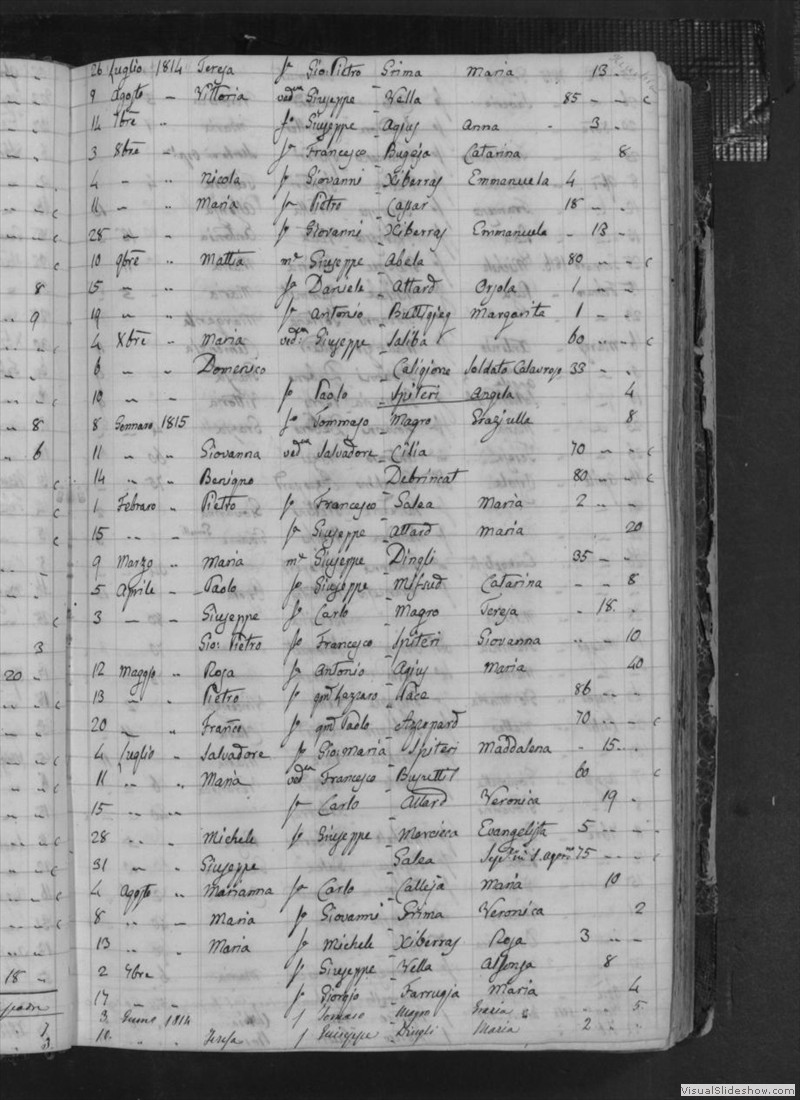 26 Luglio 1814 Teresa fa Gio: Pietro Grima Maria 13
9 Agosto Vittoria ved Giuseppe Vella 85 c
14 7bre fa Giuseppe Agius Anna 3
3 8bre fa Francesco Bugeja Catarina 8
4 Nicola fo Giovanni Xiberras Emmanuela 4
11 Maria fa Pietro Cassar 18
28 fo Giovanni Xiberras Emmanuela 13
10 9bre Mattia me Giuseppe Abela 80 c
15 fo Daniele Attard Orsola 1
19 fa Antonio Buttigieg Margarita 1
4 Xbre Maria ved Giuseppe Saliba 60 c
6 Domenico Caligione Soldato 33
10 fo Paolo Spiteri Angela 4
8 Gennaro 1815 fo Tommaso Magro Graziulla 8
11 Giovanna ved Salvadore Cilia 70 c
14 Benigno Debrincat 80 c
1 Febraro Pietro fo Francesco Galea Maria 2
15 fa Giuseppe Attard Maria 20
9 Marzo Maria me Giuseppe Dingli 35
5 Aprile Paolo fo Giuseppe Mifsud Catarina 8
3 Giuseppe fo Carlo Magro Teresa 18
Gio: Pietro fo Francesco Spiteri Giovanna 10
12 Maggio Rosa fa Antonio Agius Maria 40
13 Pietro fo qm Lazzaro Pace 86
20 Franco fo qm Paolo Azzopard 70 c
4 Luglio Salvadore fo Gio: Maria Spiteri Maddalena 15
11 Maria ved Francesco Busuttil 60 c
15 fa Carlo Attard Veronica 19
28 Michele fo Giuseppe Mercieca Evangelista 5
31 Giuseppe Galea 75 c
4 Agosto Marianna fa Carlo Calleja Maria 10
8 Maria fa Giovanni Grima Veronica 2
13 Maria fa Michele Xiberras Rosa 3
2 7bre fo Giuseppe Vella Alfonsa 8
17 fo Giorgio Farrugia Maria 4
3 1814 f Tomaso Magro Grazia 5
10 Teresa f Giuseppe Dingli Maria 2
VisualSlideshow.com